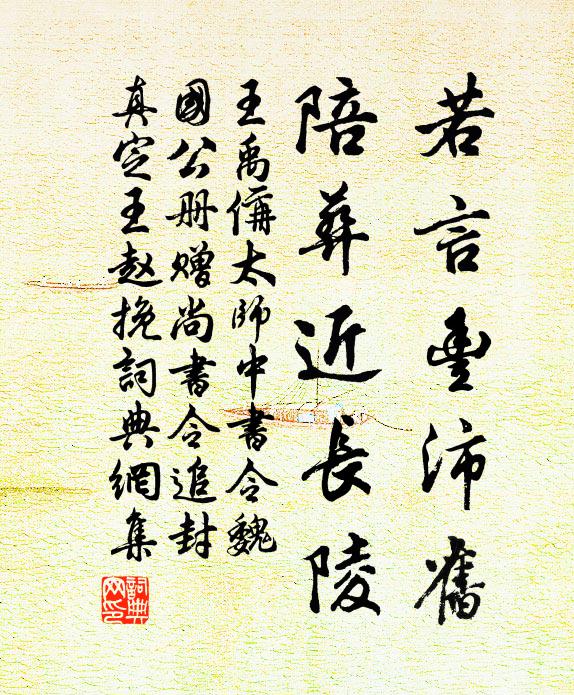 若言豊沛舊
陪葬近長陵
王禹偁太师中書令魏
國公册贈尚書令追封
真定王赵挽詞典網集
詞典网印